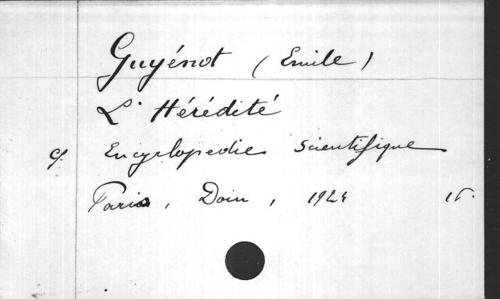 Guyénot (Emile)
L'Hérédité
cf. Encyclopedie scientifique
Paris, Doin, 1924